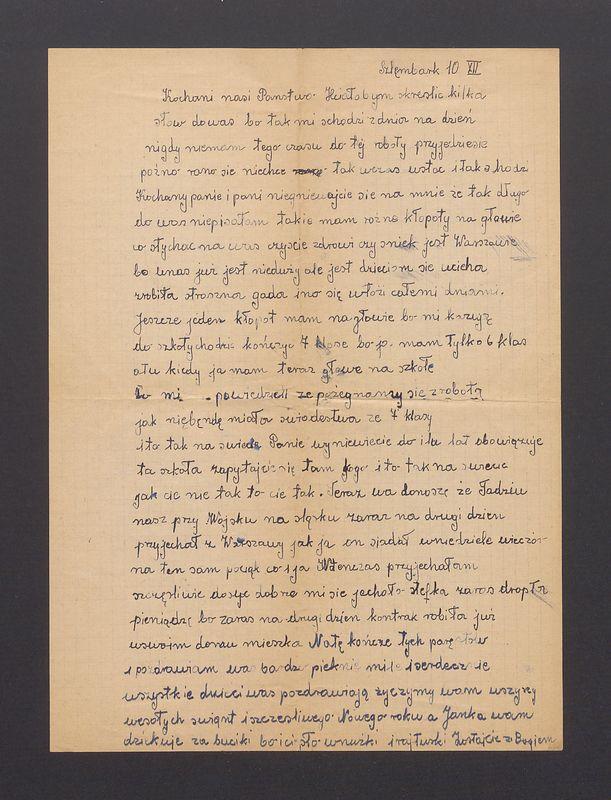 Szlembark 10 XII
Kochani nasi Panstwo. Hciałabym skreslic kilka
słow dowas bo tak mi schodzi z dnia na dzień
nigdy niemam tego czasu do tej roboty przyjedziesie
pożno rano sie niechce tak wczas wstac i tak schodzi
Kochany panie i pani niegniewajcie sie na mnie ze tak długo
do was niepisałam takie mam rożne kłopoty na głowie
co słychac na was czyscie zdrowi czy snieg jest Warszawie
bo unas już jest nieduży ale jest dzieciom sie ucicha
zrobiła straszna gada ino się włoży całemi dniami.
Jeszcze jeden kłopot mam na głowie bo mi każyją
do szkoły chodzic kończyc 7 klase bo p. mam tylko 6 klas
atu kiedy ja mam teraz głowe na szkołe
bo mi powiedzieli ze pożegnamy się z robotą
jak niębęnde miała swiadestwa ze 7 klasy
i to tak na swiecie Panie wyniewiecie do ilu lat obowiązuje
ta szkoła zapytajcie się tam kogo i to tak na swiecie
jak cie nie tak to cie tak. Teraz wa donoszę że Tadziu
nasz przy Wojsku na sląsku zaraz na drugi dzien
przyjechał z Warszawy jak ja on sjadał wniedziele wieczór
na ten sam pociąg co i ja Wtenczas przyjechałam
szczęsliwie dosyc dobrze mi sie jechało stefka zaras
pieniądzę bo zaras na drugi dzien kontrak robiła już
uswoim domu mieszka Natę kończe tych parę słow
i pozdrawiam was bardzo pieknie mile i serdecznie
wszystkie dzieci was pozdrawiają życzymy wam wszyscy
wesołych swiąnt i szczesliwego Nowego roku a Janka wam
dziekuje za buciki bo ici sło wnuźki i rajtuski Zostajcie z Bogiem